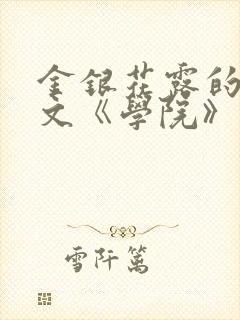 金银花露的
文《学院》
雪阡篱